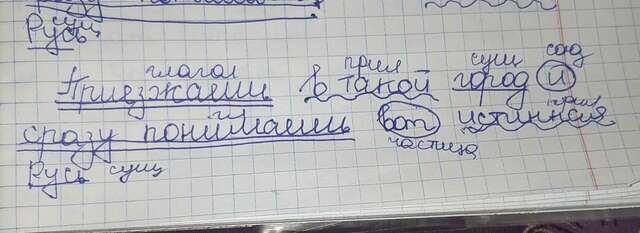 сущ
Русь.
глагол прил сущ союз
Приезжаешь в такой город и
гл прил
сразу понимаешь вот истинная
частица
Русь сущ